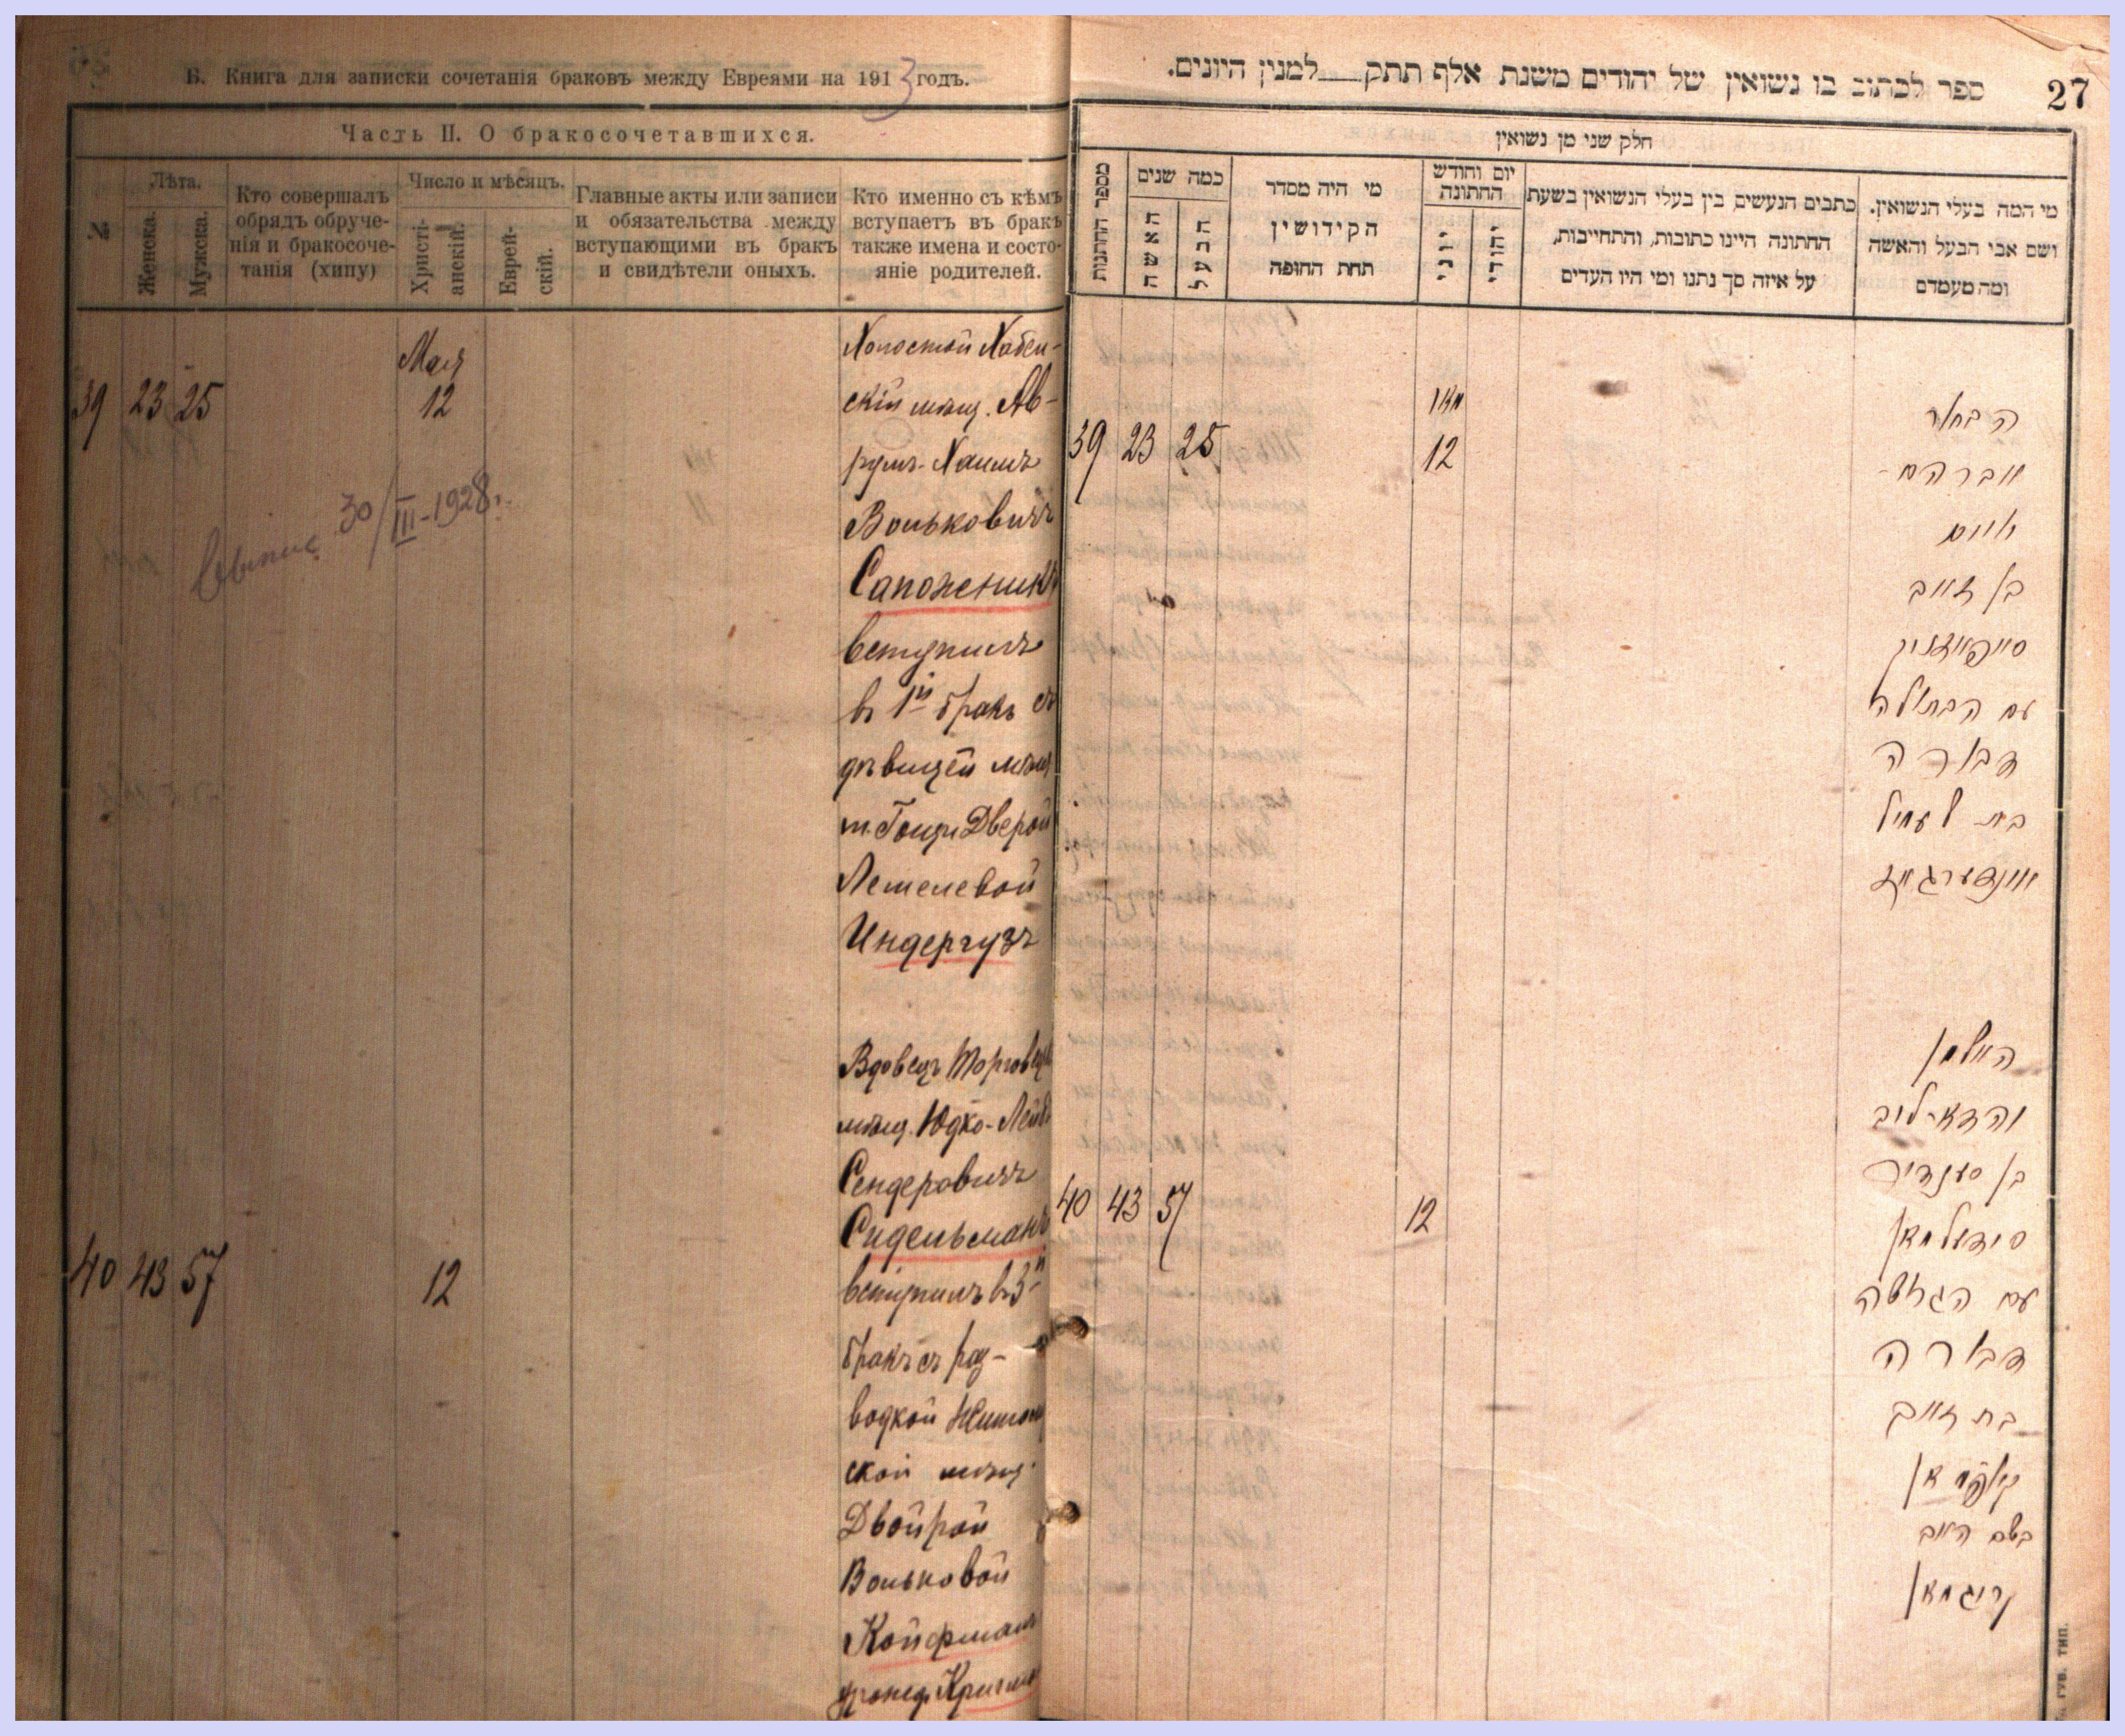 Б. Книга для записки сочетанія браковъ между Евреями на 1913 годъ.
Часть II. О бракосочетавшихся.
№
Лѣта.
Женска.
Мужска.
Кто совершалъ
обрядъ обруче-
нія и бракосоче-
танія (хипу)
Число и мѣсяцъ.
Христі-
анскій.
Еврей-
скій.
Главные акты или записи
и обязательства между
вступающими въ бракъ
и свидѣтели оныхъ.
Кто именно съ кѣмъ
вступаетъ въ бракъ
также имена и состо-
яніе родителей.
Мая
39 23 25 12
30/III-1928г.
Холостой Хабен-
скій мѣщ. Ав-
румъ-Хаимъ
Вольковичъ
Сапожникъ
вступилъ
въ 1й бракъ съ
дѣвицей мѣщ
м. Гощи Дверой
Лемелевой
Индергузъ
40 43 57 12
Вдовецъ
мѣщ. Юдко-Лейб
Сендеровичъ
Сидельманъ
вступилъ въ 3й
бракъ съ раз-
водкой
ской мѣщ.
Двойрой
Вольковой
Койфманъ
27
ספר לכתוב בו נשואין של יהודים משנת אלף תתק למנין היונים.
חלק שני מן נשואין
מספר החתונות
כמה שנים
האשה
הבעל
מי היה מסדר
הקידושין
תחת החופה
יום וחודש
החתונה
יוני
יהודי
כתבים הנעשים בין בעלי הנשואין בשעת
החתונה היינו כתובות, והתחייבות,
על איזה סך נתנו ומי היו העדים
מי המה בעלי הנשואין.
ושם אבי הבעל והאשה
ומה מעמדם
מאי
39 23 25 12
הבחור
אברהם
חיים
בן זאב
סאפאזניק
עם הבתולה
דבורה
בת לעמיל
אינדערגוז
40 43 57 12
האלמן
יהודא ליב
בן סענדיר
סידעלמאן
עם הגרושה
דבורה
בת זאב
קויפמאן
בשם האב
קריגמאן
ГУБ. ТИП.